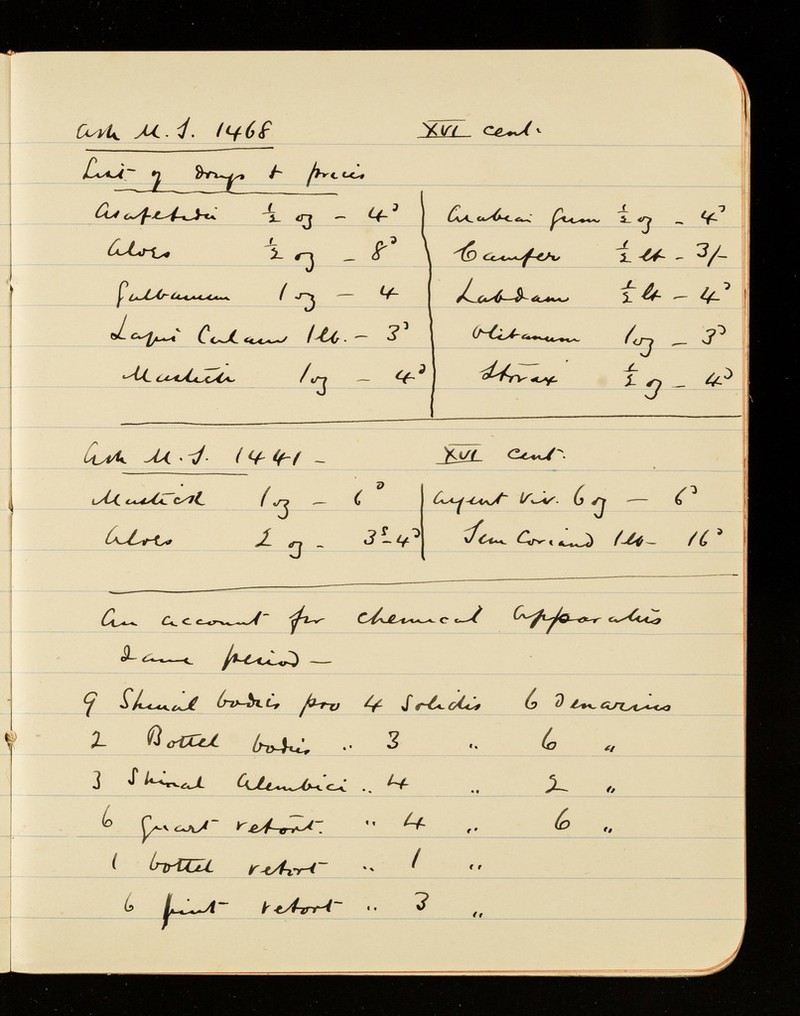 Ash M.S. 1468 XVI cent.
List of drugs & prices
Asafetida ½ oz – 4ᵈ
Aloes ½ oz – 8ᵈ
Galbanum 1 oz – 4
Lapis Calam 1 lb. – 3ᵈ
Mastich 1 oz – 4ᵈ
Arabian Gum ½ oz – 4ᵈ
Camfer ½ lb – 3/-
Labdam ½ lb – 4ᵈ
Olibanum 1 oz – 3ᵈ
Storax ½ oz – 4ᵈ
Ash M.S. 1441 – XVI cent.
Mastick 1 oz – 6ᵈ
Aloes 2 oz – 3ˢ–4ᵈ
Argent Viv. 6 oz – 6ᵈ
Sem Coriand 1 lb – 16ᵈ
An account for chemical apparatus
same period –
9 bodies pro 4 Solidis 6 Denarius
2 Bottel bodies " 3 " 6 "
3 Alembici " 4 " 2 "
6 quart retort. " 4 " 6 "
1 bottel retort " 1 "
6 pint retort " 3 "